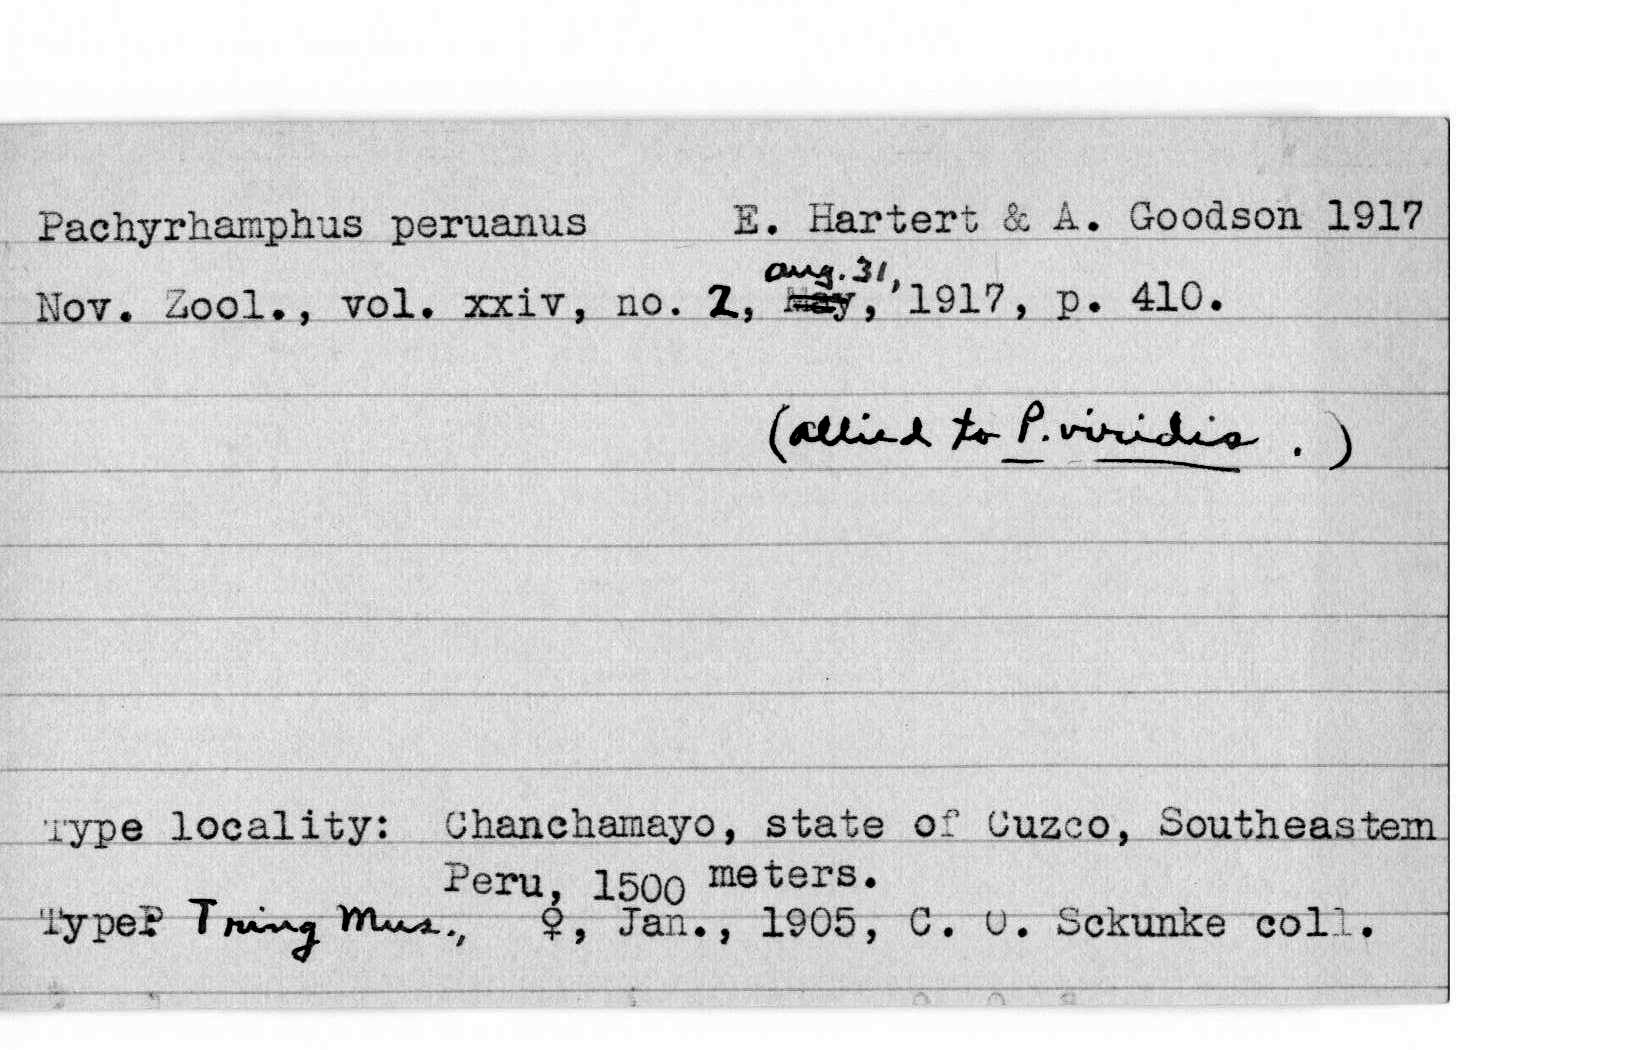 Pachyrhamphus peruanus E. Hartert & A. Goodson 1917
aug. 31,
Nov. Zool., vol. xxiv, no. 2, May, 1917, p. 410.
(allied to P. viridis.)
Type locality: Chanchamayo, state of Cuzco, Southeastern
Peru, 1500 meters.
Type: Tring Mus., ♀, Jan., 1905, C. O. Sckunke coll.